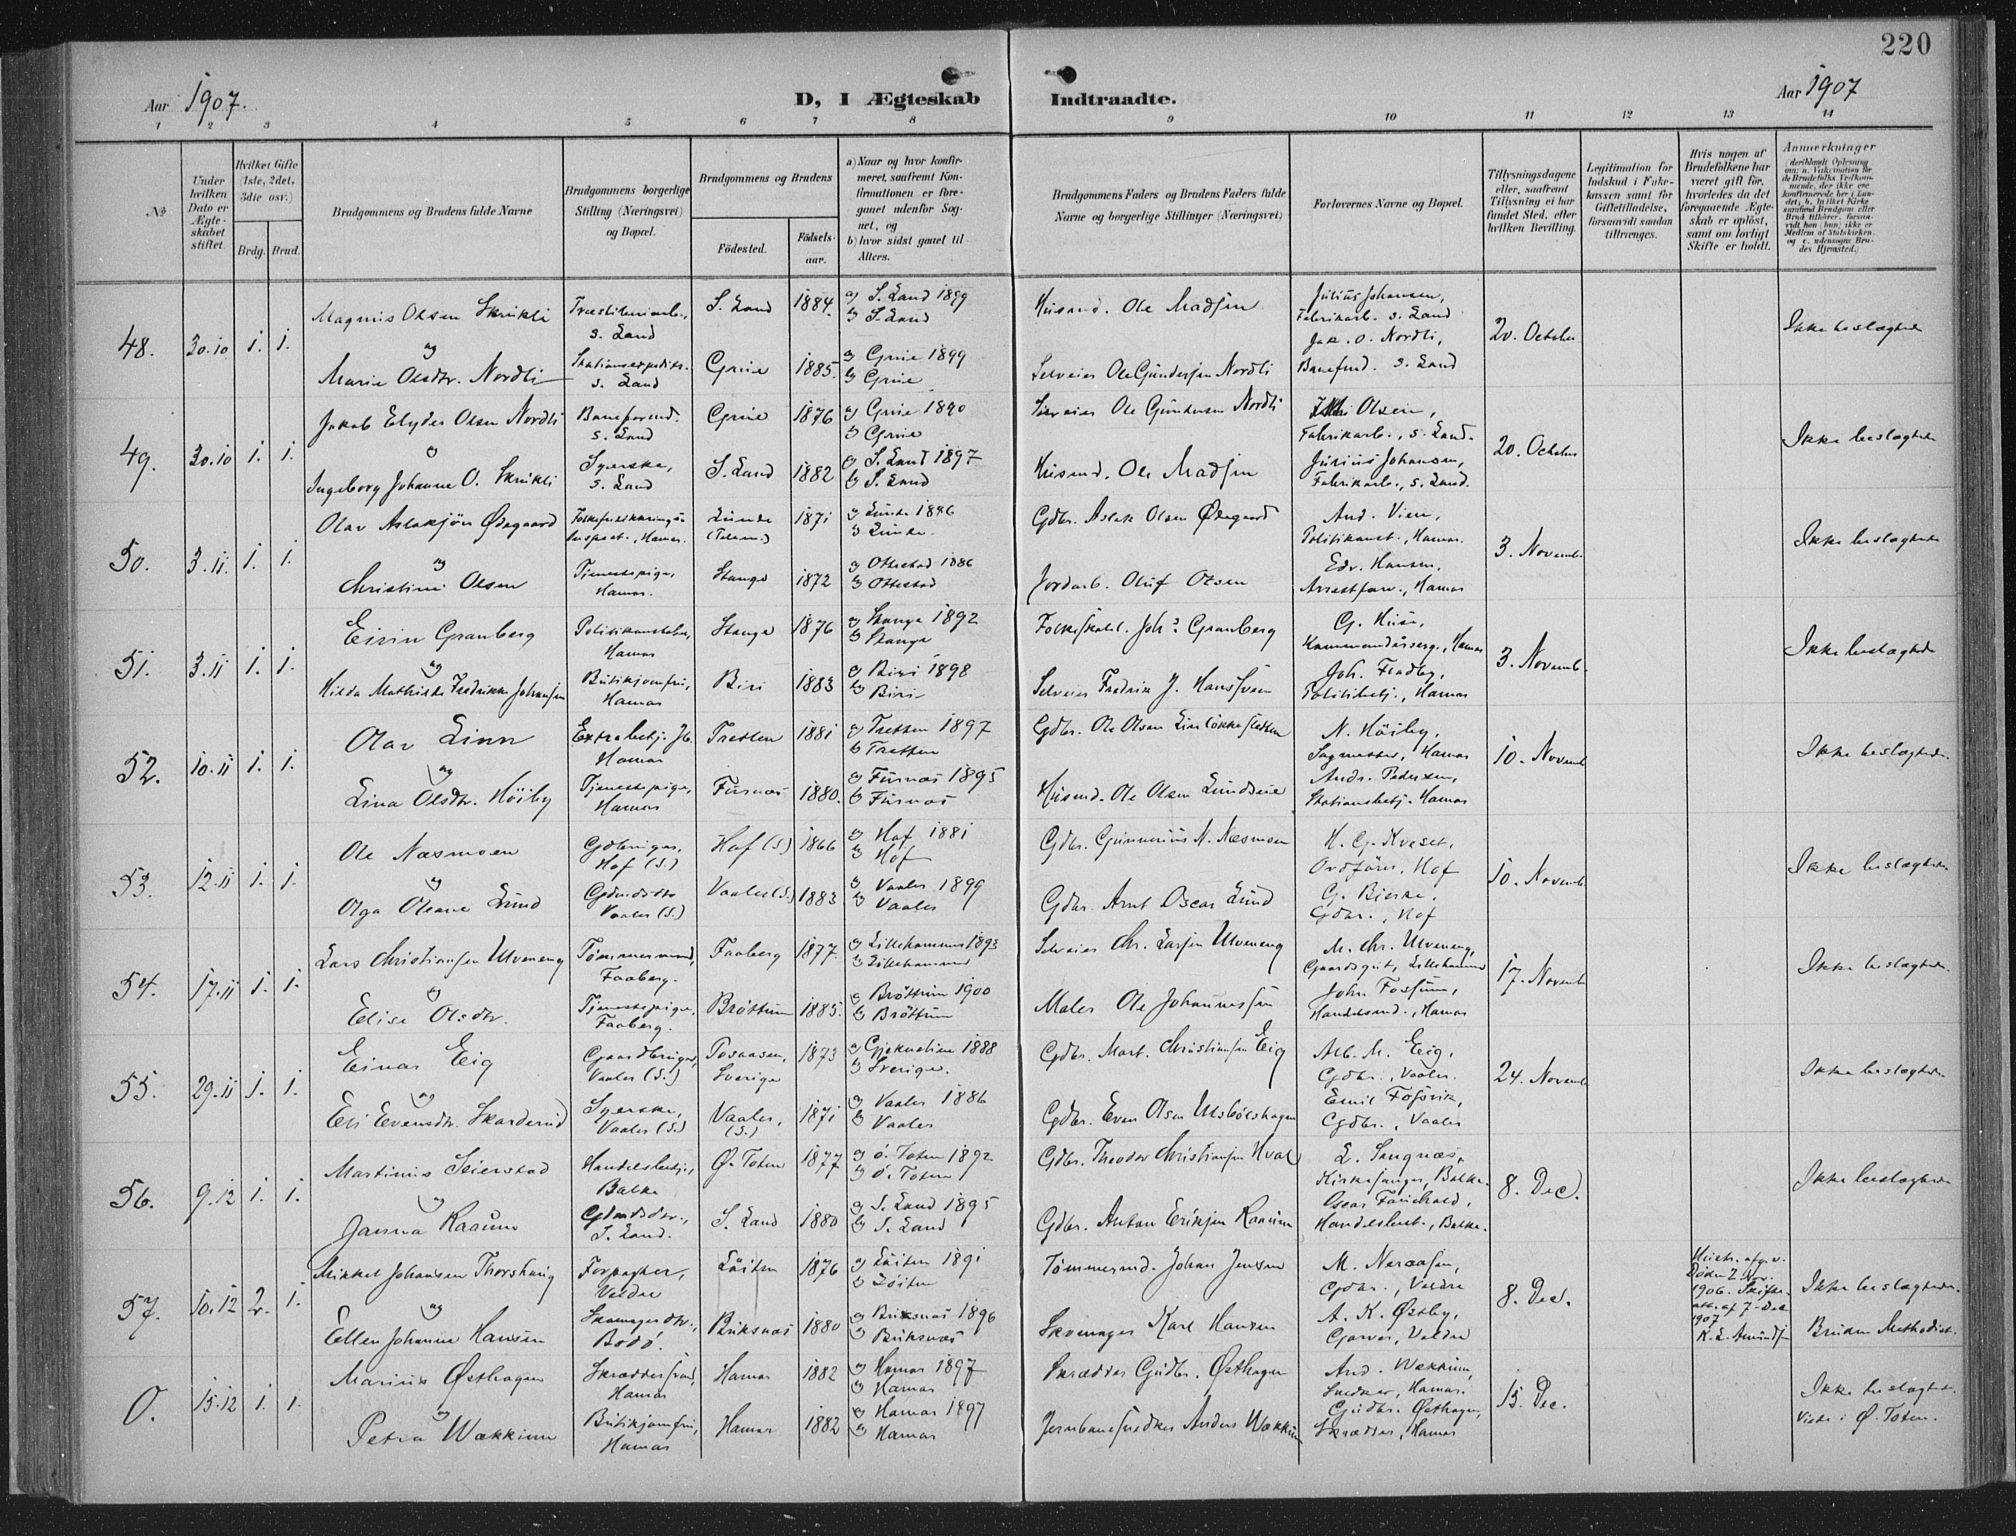 220
Aar 1907.
D, I Ægteskab Indtraadte.
Aar 1907
1 2 3 4 5 6 7 8 9 10 11 12 13 14
No
Under hvilken Dato er Ægteskabet stiftet.
Hvilket Gifte (1ste, 2det, 3die osv.)
Brdg. Brud.
Brudgommens og Brudens fulde Navne
Brudgommens borgerlige Stilling (Næringsvei) og Bopæl.
Brudgommens og Brudens
Fødested. Fødselsaar.
a) Naar og hvor konfirmeret, saafremt Konfirmationen er foregaaet udenfor Sognet, og
b) hvor sidst gaaet til Alters.
Brudgommens Faders og Brudens Faders fulde Navne og borgerlige Stillinger (Næringsvei)
Forlovernes Navne og Bopæl.
Tillysningsdagene eller, saafremt Tillysning ei har fundet Sted, efter hvilken Bevilling.
Legitimation for Indskud i Fukekassen samt for Giftetilladelse, forsaavidt saadan tiltrænges.
Hvis nogen af Brudefolkene har været gift før, hvorledes da det foregaaende Ægteskab er opløst, samt om lovligt Skifte er holdt.
Anmerkninger
48. 30.10 1. 1.
Magnus Olsen Skrukli
S. Land
S. Land 1884.
a) S. Land 1899
b) S. Land
Husmd. Ole Madsen
Julius Johansen,
Fabrikarb. S. Land
Jak. O. Nordli,
Banefmd. S. Land
20. October
Ikke beslægtede
og
Marie Olsdtr. Nordli
S. Land
Grue 1885.
a) Grue 1899
b) Grue
Selveier Ole Gundersen Nordli
49. 30.10 1. 1.
Jakob Elyder Olsen Nordli
Baneformd. S. Land
Grue 1876
a) Grue 1890
b) Grue
Selveier Ole Gundersen Nordli
Olsen,
Fabrikarb., S. Land.
Julius Johansen,
Fabrikarb., S. Land.
20. October
Ikke beslægtede
Ingeborg Johanne O. Skrukli
Syerske, S. Land
S. Land 1882
a) S. Land 1897
b) S. Land
Husmd. Ole Madsen
50. 3.11. 1. 1.
Olav Aslaksjön Ødegaard
Inspect., Hamar.
Lunde (Telem.) 1871
a) Lunde 1886
b) Lunde.
Gdbr. Aslak Olsen Ødegaard
And. Vien,
Politikonst., Hamar.
Edv. Hansen,
Arrestforv., Hamar
3. Novemb.
Ikke beslægtede
og
Christine Olsen
Tjenestepige, Hamar.
Stange 1872
a) Ottestad 1886
b) Ottestad
Jordarb. Oluf Olsen
51. 3.11 1. 1.
Eivin Granberg
Politikonstabel, Hamar
Stange 1876
a) Stange 1892
b) Stange
Johs. Granberg
G. Huse,
Hamar
Joh. Fladby,
Politibetj., Hamar
3. Novemb.
Ikke beslægtede
og
Hilda Mathilde Fredrikke Johansen
Butikjomfru, Hamar
Biri 1883
a) Biri 1898
b) Biri
Selveier Fredrik J. Hansveen
52. 10.11 1. 1.
Olav Linn
Extrabetj. Jb. Hamar
Tretten 1881
a) Tretten 1897
b) Tretten
Gdbr. Ole Olsen
N. Høiby,
Sagmester, Hamar
Andr. Pedersen,
Stationsbetj. Hamar
10. Novemb
Ikke beslægtede.
og
Lina Olsdtr. Høiby
Tjenestepige, Hamar
Furnæs 1880.
a) Furnæs 1895
b) Furnæs
Husmd. Ole Olsen Lundseie
53. 12.11 1. 1.
Ole Næsmoen
Gdbruger, Hof (S.)
Hof (S) 1866
a) Hof 1881
b) Hof
Gdbr. Gunnerius N. Næsmoen
H. G. Kveset,
Ordfører, Hof
G. Bjerke,
Gdbr., Hof
10. Novemb
Ikke beslægtede.
og
Olga Oleane Lund
Gdmdsdtr Vaaler (S.)
Vaaler (S.) 1883
a) Vaaler 1899
b) Vaaler
Gdbr. Arnt Oscar Lund
54. 17.11 1. 1.
Lars Christiansen Ulveneng
Tømmermand, Faaberg.
Faaberg 1877.
a) Lillehammer 1893
b) Lillehammer
Selveier Chr. Larsen Ulveneng
M. Chr. Ulveneng,
Gaardsgut, Lillehammer
John Fossum,
Handelsmd., Hamar
17. Novemb
Ikke beslægtede.
og
Elise Olsdtr.
Tjenestepige, Faaberg.
Brøttum 1885.
a) Brøttum 1900
b) Brøttum
Maler Ole Johannessen
55. 29.11 1. 1.
Einar Eig
Gaardbruger, Vaaler (S.)
Posaasen, Sverige 1873
a) 1888
b) Sverige.
Gdbr. Mart. Christiansen Eig
Alb. M. Eig,
Gdbr., Vaaler.
Emil Fosvik,
Gdbr., Vaaler
24. Novemb
Ikke beslægtede.
og
Eli Evensdtr. Skarderud
Syerske, Vaaler (S.)
Vaaler, (S.) 1871
a) Vaaler 1886
b) Vaaler
Gdbr. Even Olsen Ulsbølshagen
56. 9.12 1. 1.
Martinus Seierstad
Handelsbetj., Balke
Ø. Toten 1877
a) Ø. Toten 1892
b) Ø. Toten
Gdbr. Theodor Christiansen Hval
L. Sangnæs,
Kirkesanger, Balke.
Oscar Fauchald,
Handelsbest., Balke.
8. Dec.
Ikke beslægtede
og
Janna Raaum
Gdmdsdtr., S. Land.
S. Land 1880
a) S. Land 1895
b) S. Land
Gdbr. Anton Eriksen Raaum
57. 10.12 2. 1.
Mikkel Johansen Thorshaug
Forpagter, Veldre
Løiten 1876
a) Løiten 1891
b) Løiten
Tømmermd. Johan Jensen
M. Neraasen,
Gdbr., Veldre
A. K. Østby,
Garver, Veldre
8. Dec.
Hustr. afg. v. Døden 2 Nov. 1906. Skifteatt. af 7-Dec 1907
Ikke beslægtede.
Bruden Methodist.
og
Ellen Johanne Hansen
Skomagerdtr., Bodø.
Buksnæs 1880
a) Buksnæs 1896
b) Buksnæs
Skomager Karl Hansen
O. 15.12 1. 1.
Marius Østhagen
Skræddersvend, Hamar
Hamar 1882
a) Hamar 1897
b) Hamar
Skrædder Gudbr. Østhagen
And. Wækkum,
Snedker, Hamar.
Gudbr. Østhagen,
Skrædder, Hamar
15. Dec.
Ikke beslægtede.
Viet i Ø. Toten.
og
Petra Wækkum
Butikjomfru, Hamar
Hamar 1882
a) Hamar 1897
b) Hamar
Jernbanesnedker Anders Wækkum